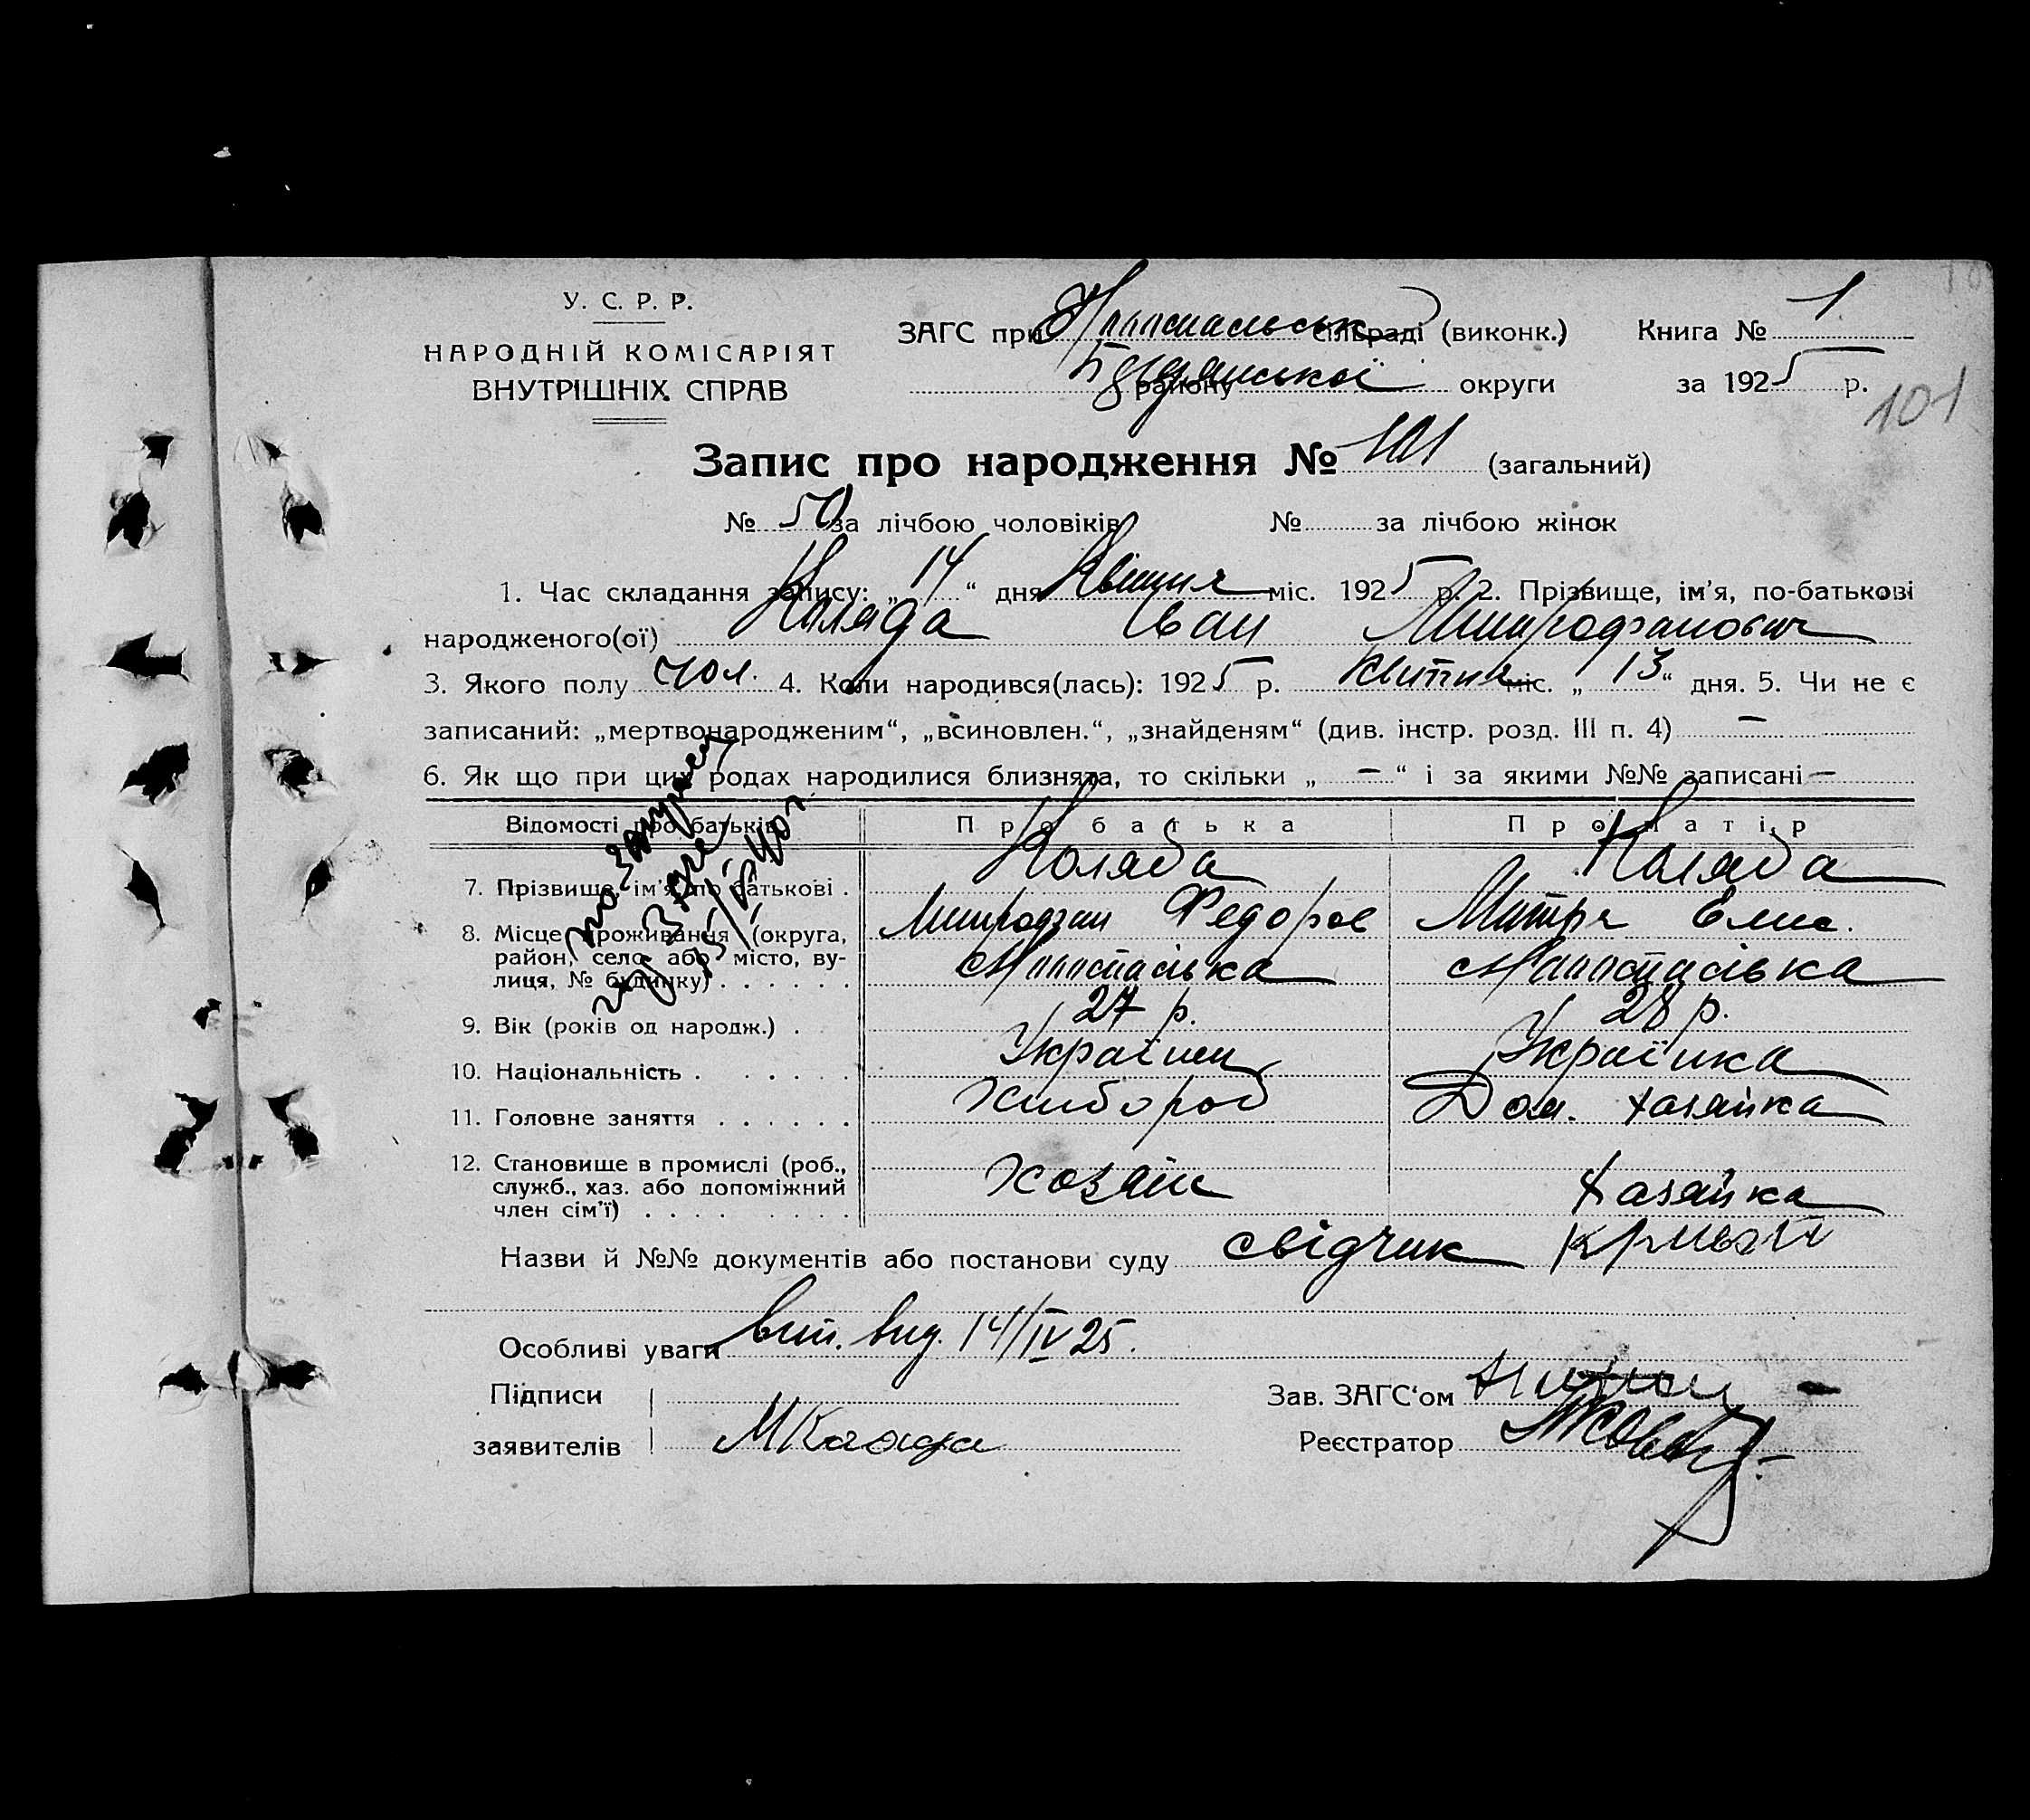 У. С. Р. Р.
НАРОДНІЙ КОМІСАРІЯТ
ВНУТРІШНІХ СПРАВ
ЗАГС при сільраді (виконк.) Книга № 1
району округи за 1925 р.
101
Запис про народження № 101 (загальний)
№ 50 за лічбою чоловіків № за лічбою жінок
1. Час складання запису: „ 14 “ дня Квітня міс. 1925 р. 2. Прізвище, ім'я, по-батькові
народженого(ої) Коляда Іван Митрофанович
3. Якого полу чол. 4. Коли народився(лась): 1925 р. Квітня міс. „ 13 “ дня. 5. Чи не є
записаний: „мертвонародженим“, „всиновлен.“, „знайденям“ (див. інстр. розд. III п. 4) —
6. Як що при цих родах народилися близнята, то скільки „ — “ і за якими №№ записані —
Відомості про батьків Про батька Про матір
Коляда Коляда
7. Прізвище, ім'я, по батькові .
Митрофан Федоров Мотря
8. Місце проживання (округа,
район, село або місто, ву-
лиця, № будинку) . . . . . .
27 р. 28 р.
9. Вік (років од народж.) .
Українец Українка
10. Національність . . . . . .
Хлібороб Дом. хазяйка
11. Головне заняття . . . . . .
12. Становище в промислі (роб.,
служб., хаз. або допоміжний
член сім'ї) . . . . . . . .
хозяїн хазяйка
Назви й №№ документів або постанови суду свідчик
Особливі уваги вит. вид. 14/IV 25.
Підписи
заявителів М Каляда
Зав. ЗАГС'ом
Реєстратор